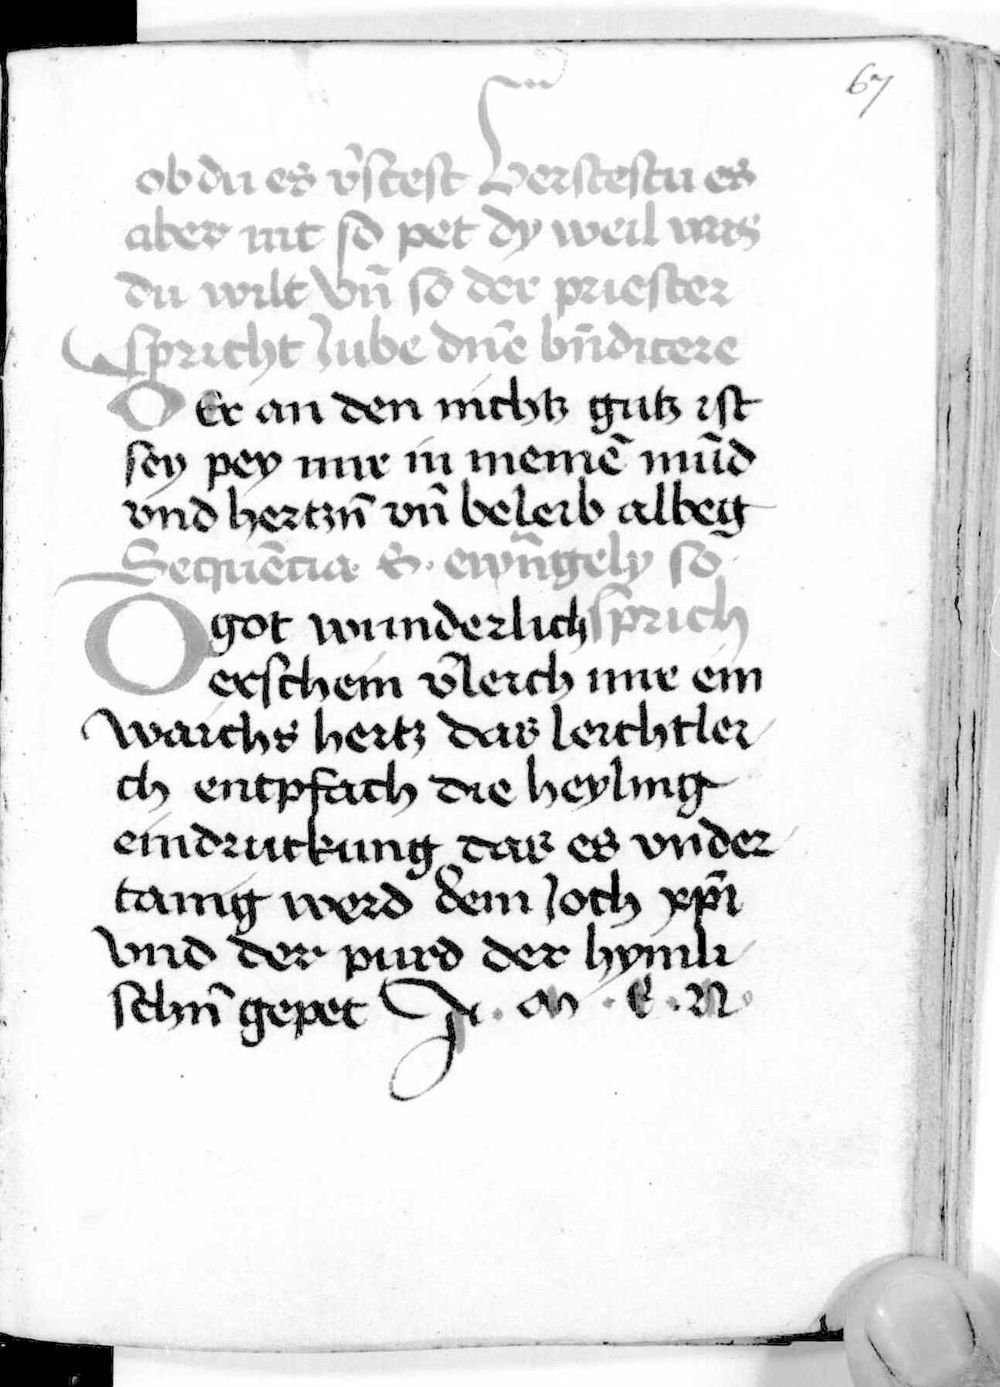 67
ob du es v̄stest Verstestu es
aber nit so pet dy weil was
du wilt Vn̄ so der priester
spricht Jube dn̄e bn̄dicere
DEr an den nichtz gutz ist
sey pey mir in meinē mūd
vnd hertzn̄ vn̄ beleib albeg
Sequēcia S. ewn̄gely so
O got wunderlich sprich
erschein v̄leich mir ein
waichs hertz das leichtlei
ch entpfach die heyling
eindruckung das es vnder
tanig werd dem Joch xp̄i
Vnd der purd der hymli
schn̄ gepet A. M. E. N.